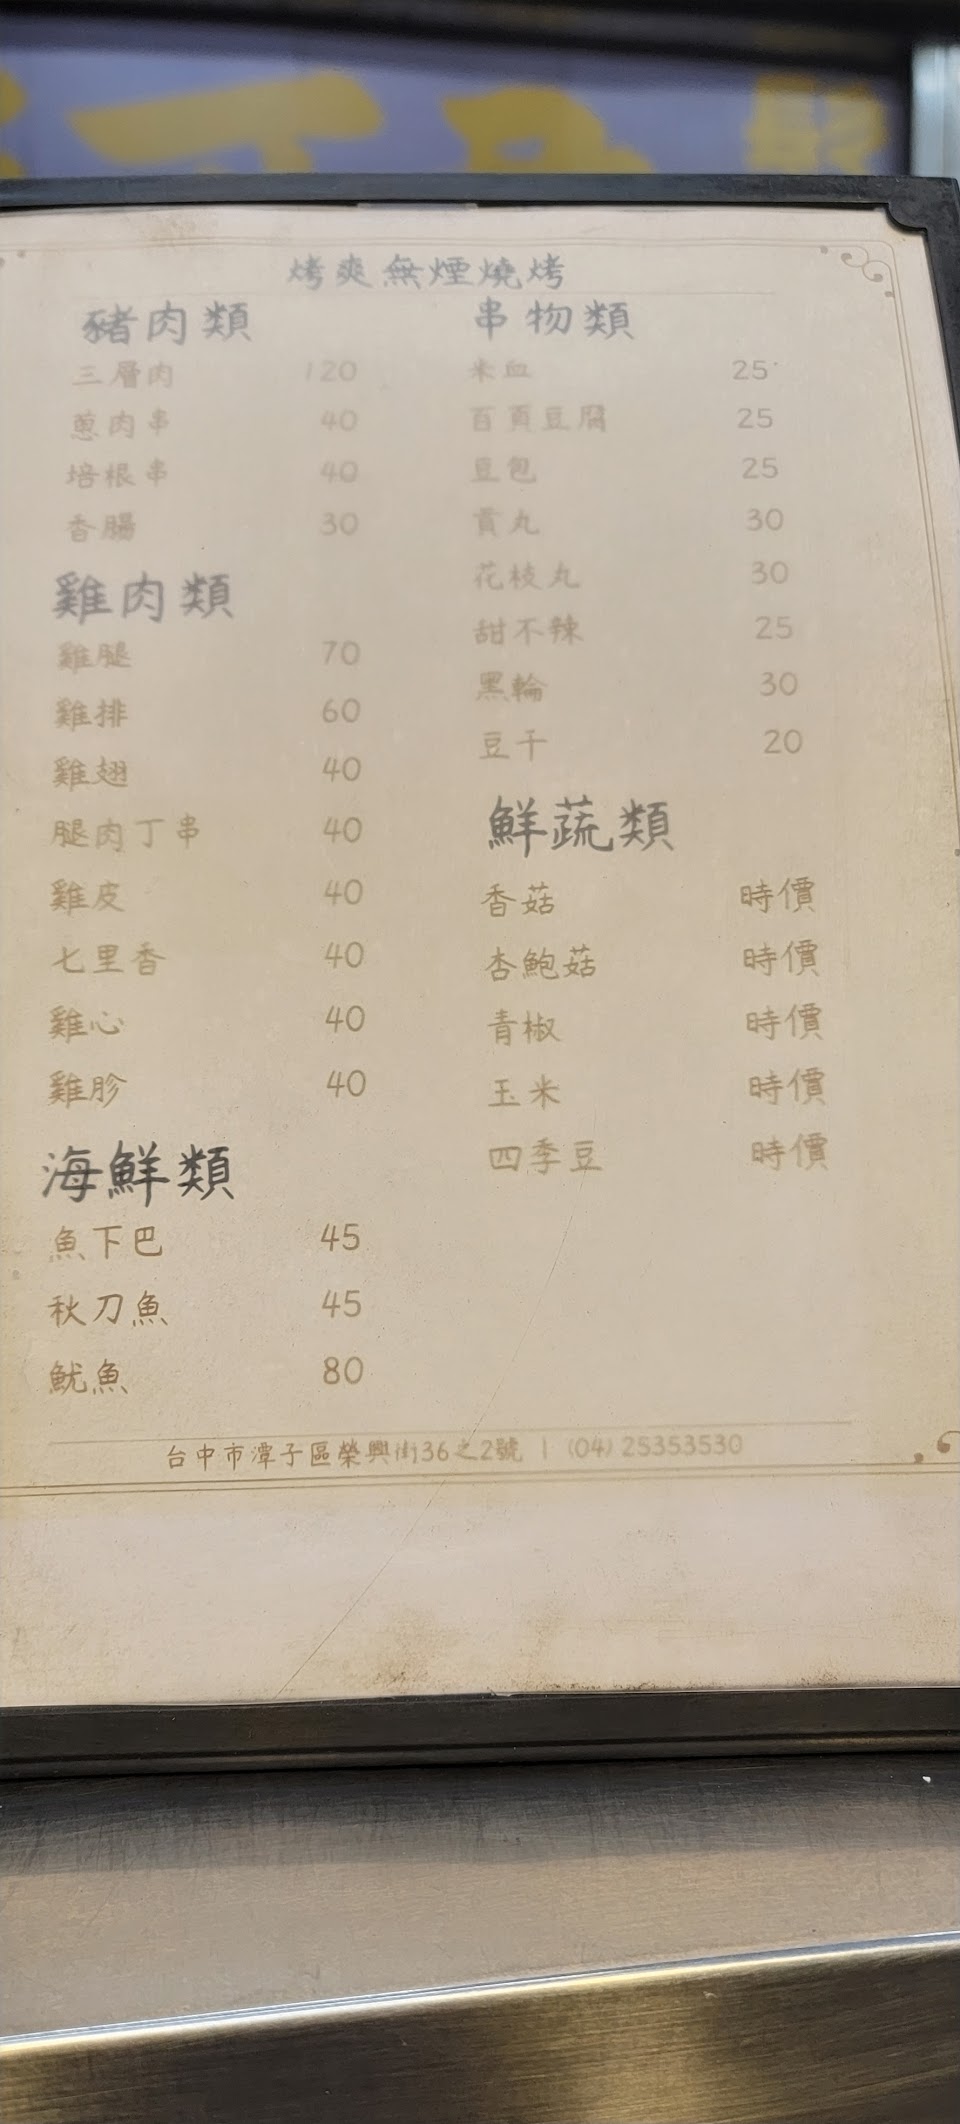 烤爽無煙燒烤
豬肉類
三層肉 120
蔥肉串 40
培根串 40
香腸 30
雞肉類
雞腿 70
雞排 60
雞翅 40
腿肉丁串 40
雞皮 40
七里香 40
雞心 40
雞胗 40
海鮮類
魚下巴 45
秋刀魚 45
魷魚 80
串物類
米血 25
百頁豆腐 25
豆包 25
貢丸 30
花枝丸 30
甜不辣 25
黑輪 30
豆干 20
鮮蔬類
香菇 時價
杏鮑菇 時價
青椒 時價
玉米 時價
四季豆 時價
台中市潭子區榮興街36之2號 | (04) 25353530